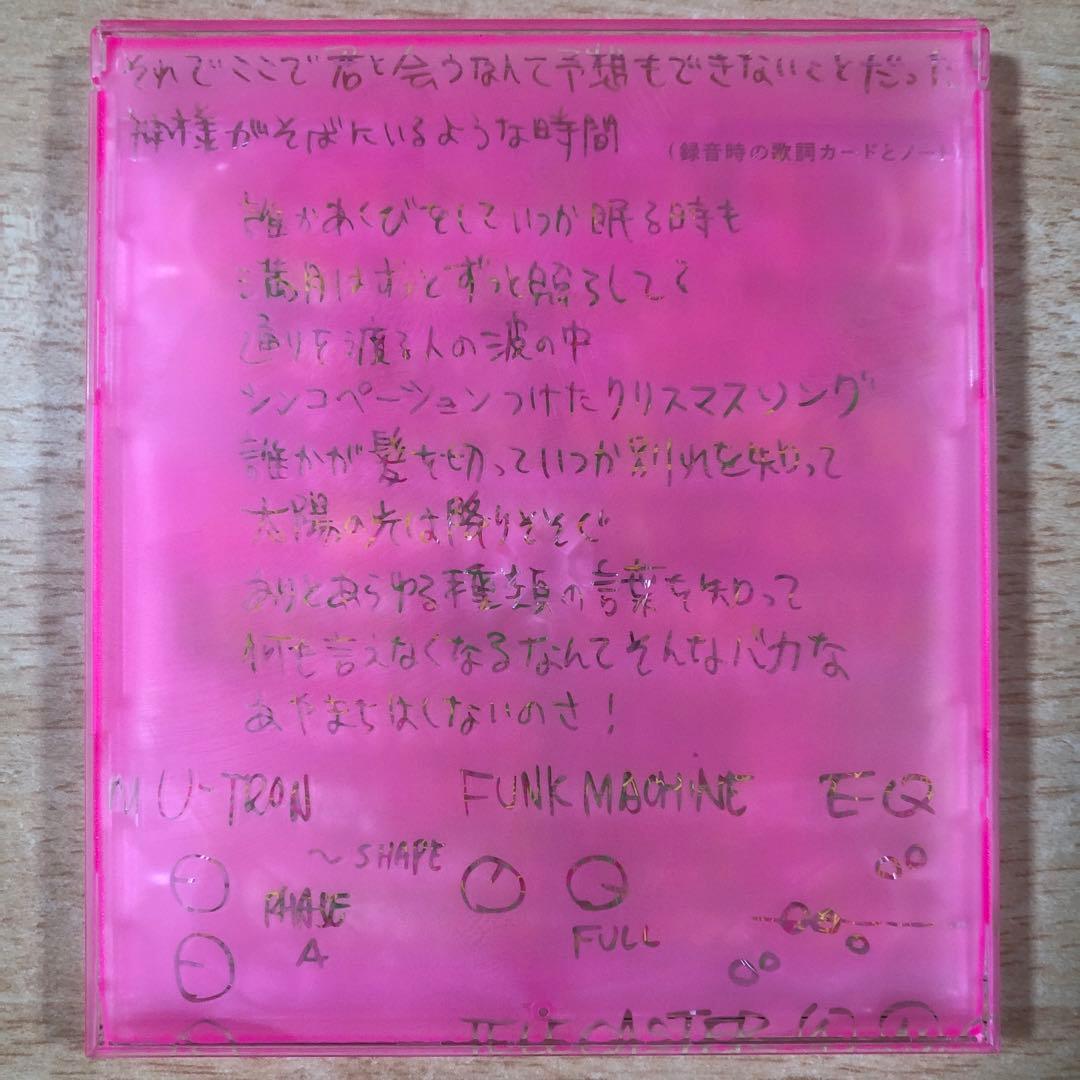 それでここで君と会うなんて予想もできないことだった
神様がそばにいるような時間
(録音時の歌詞カードとノート)
誰かあくびをしていつか眠る時も
満月はずっとずっと照らしてく
通りを渡る人の波の中
シンコペーションつけたクリスマスソング
誰かが髪を切っていつか別れを知って
太陽の光は降りそそぐ
ありとあらゆる種類の言葉を知って
何も言えなくなるなんてそんなバカな
あやまちはしないのさ!
MU-TRON FUNK MACHINE EQ
~SHAPE
PHASE
A
FULL
TELECASTER